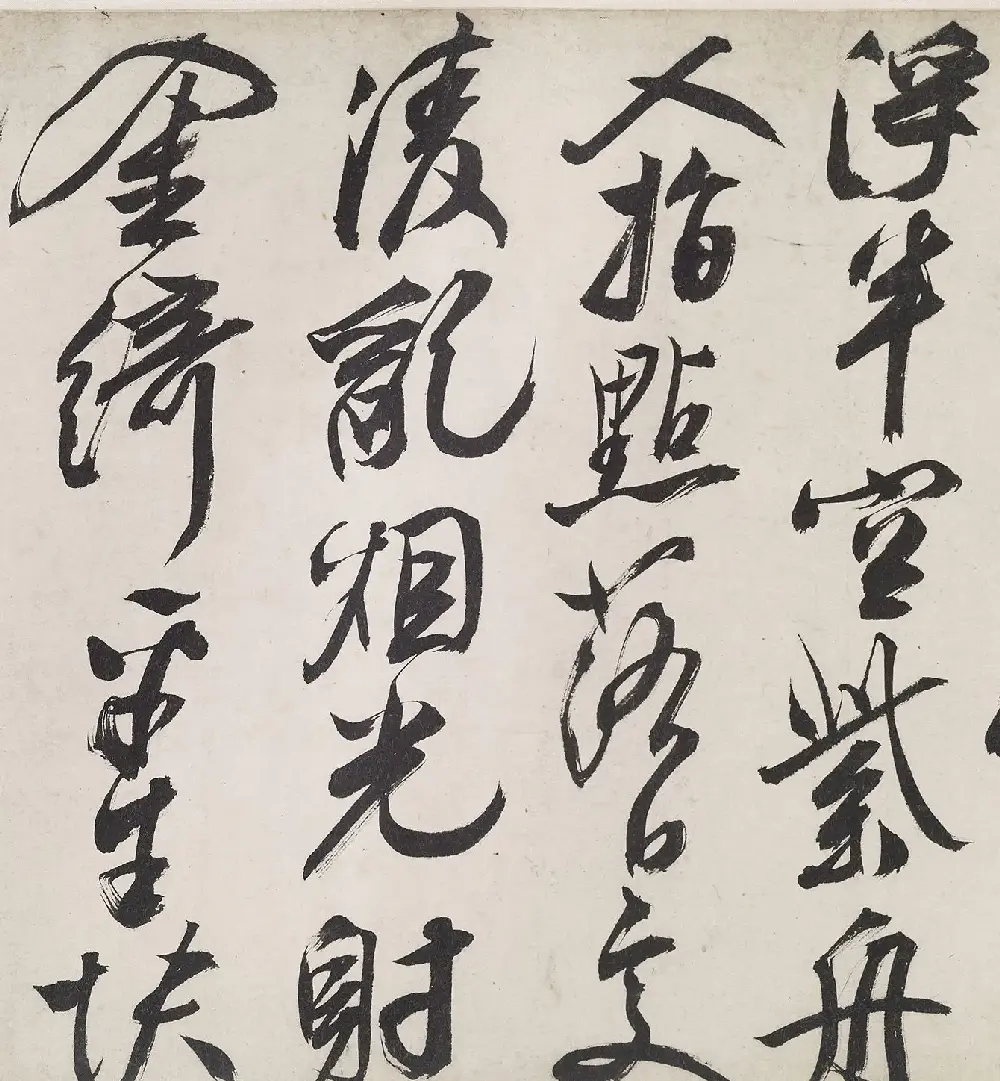 浮半空紫舟
人指點落日
淩亂烟光射
金綺平生快